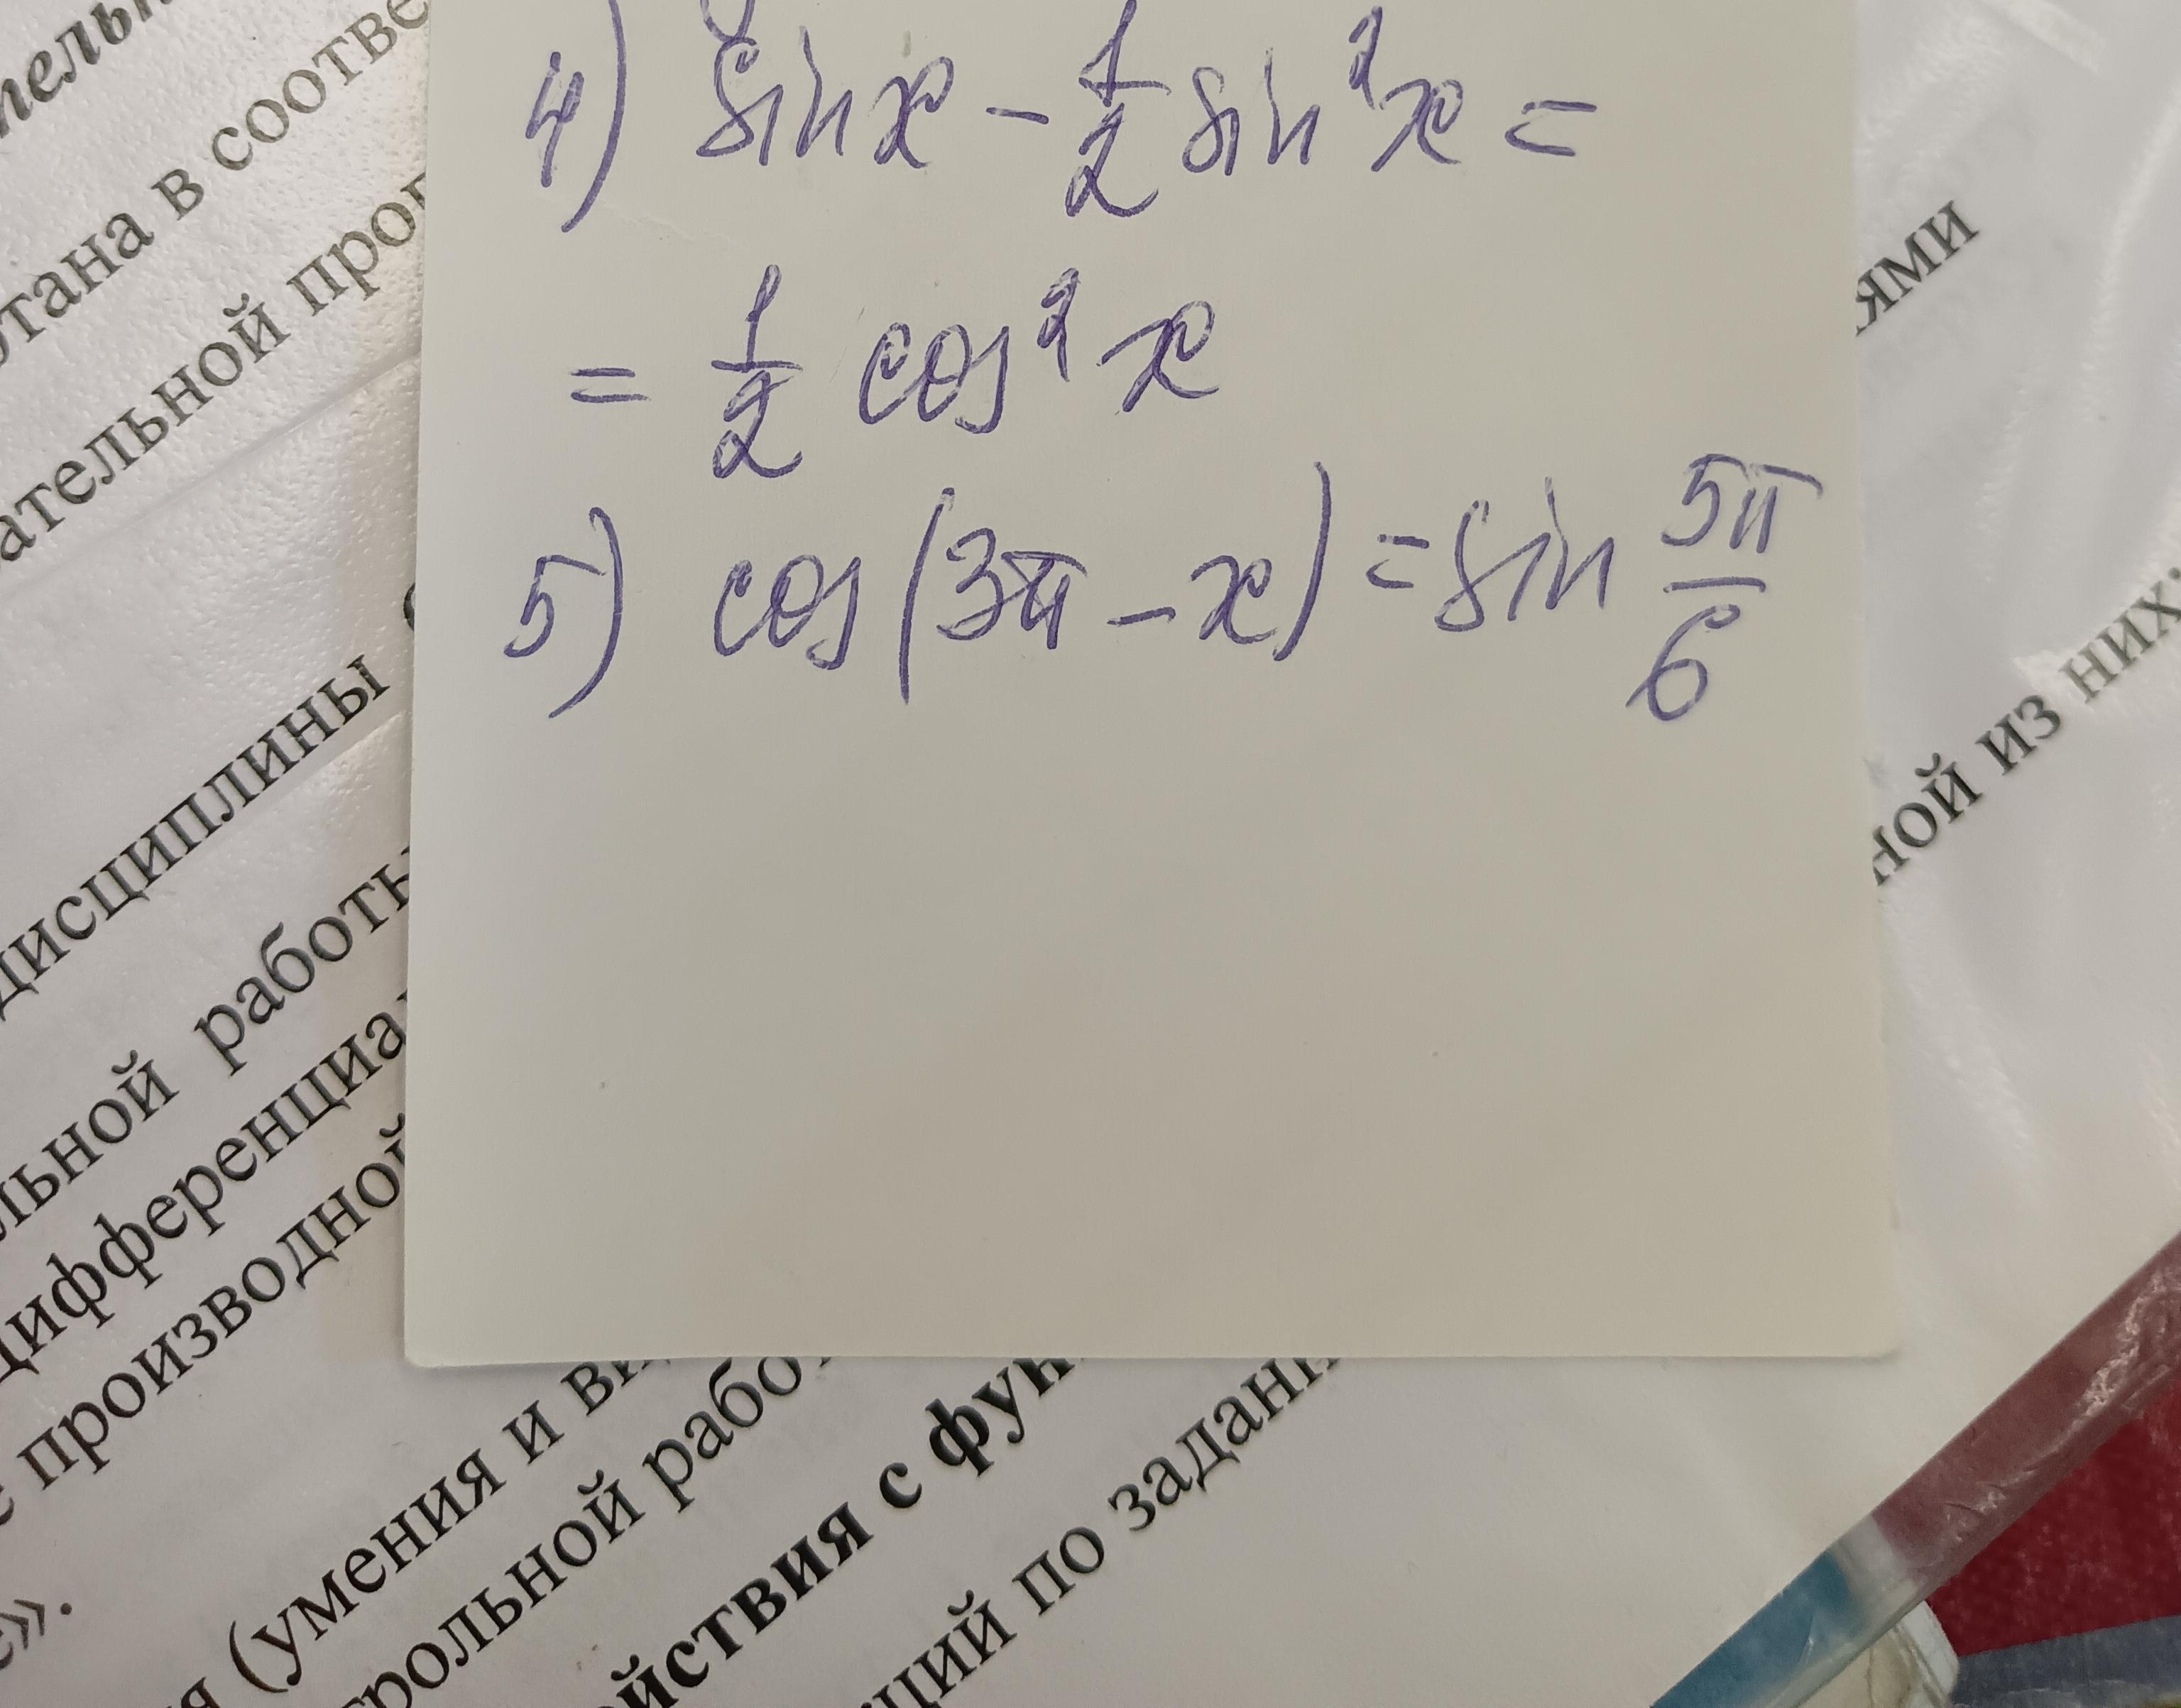 4) sin x - 1/2 sin² x =
= 1/2 cos² x
5) cos(3π - x) = sin 5π/6
отана в соотве
ательной про
дисциплины
льной работы
дифференциа
производной
(умения и ви
трольной рабо
йствия с фун
ций по задани
ями
ной из них: